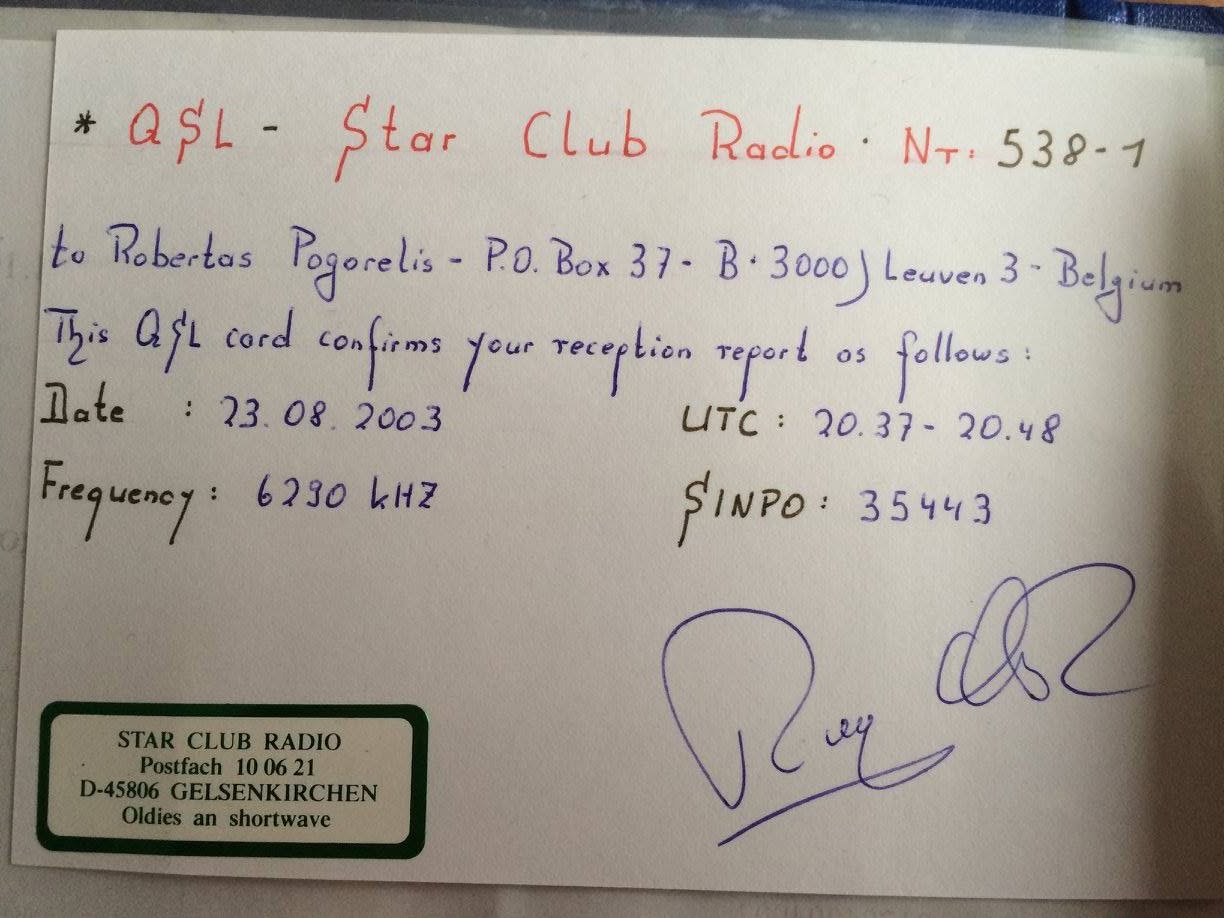 * QSL - Star Club Radio · Nr: 538-1
to Robertas Pogorelis - P.O. Box 37 - B·3000) Leuven 3 - Belgium
This QSL card confirms your reception report as follows:
Date : 23.08.2003 UTC : 20.37 - 20.48
Frequency : 6290 kHz SINPO : 35443
STAR CLUB RADIO
Postfach 10 06 21
D-45806 GELSENKIRCHEN
Oldies an shortwave